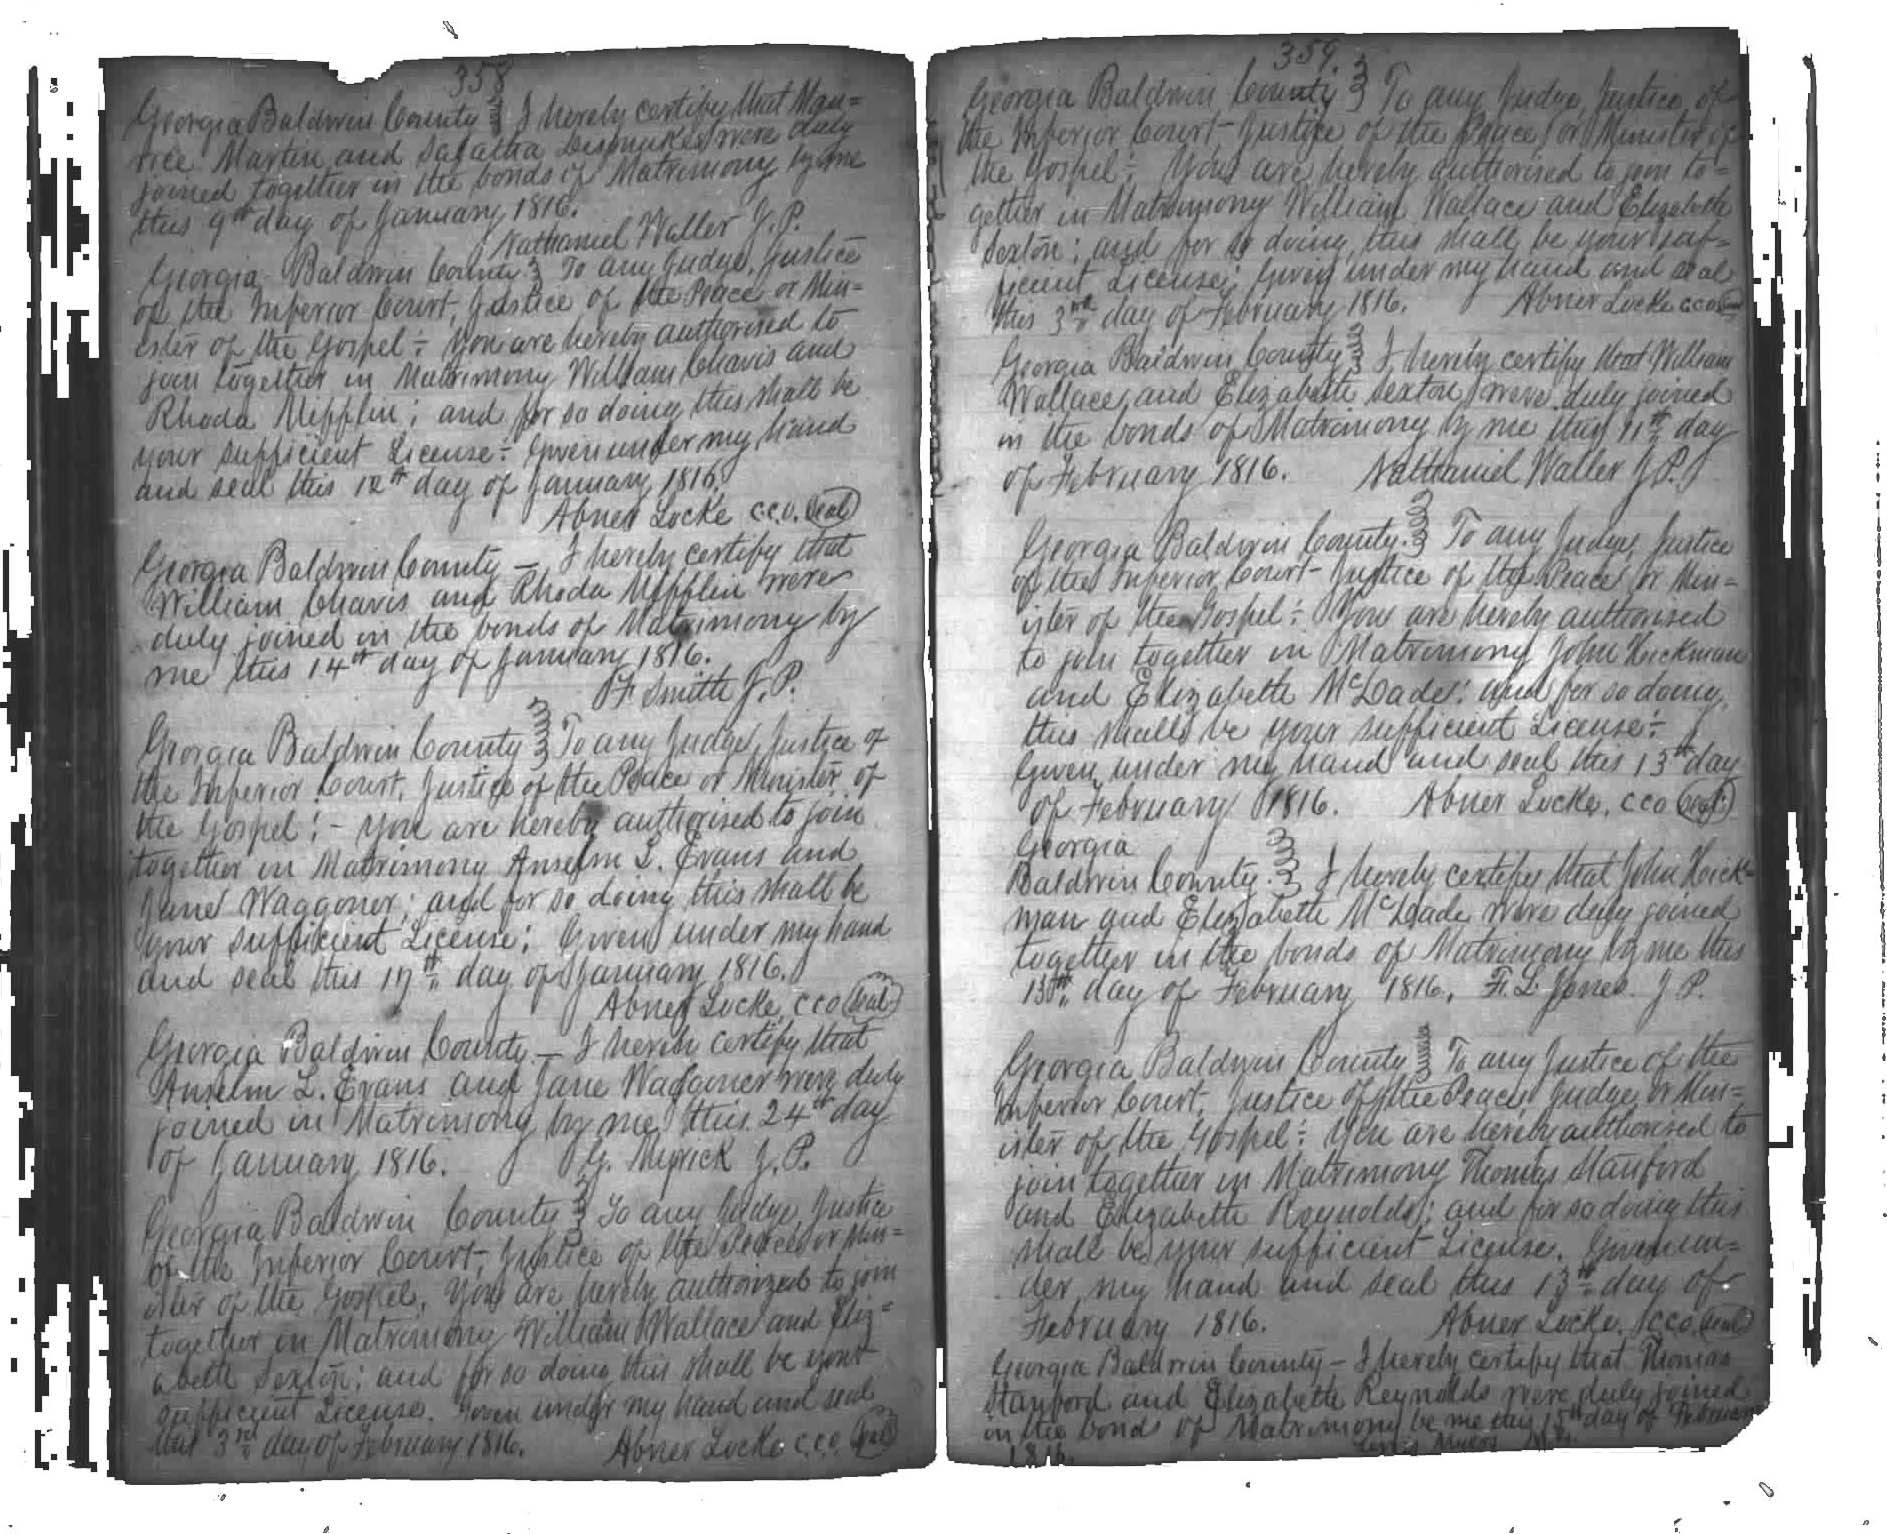 358
Georgia Baldwin County } I hereby certify that Mau=
ree Martin and Safatha Dismukes were duly
joined together in the bonds of Matrimony by me
this 9th day of January 1816.
Nathaniel Waller J.P.
Georgia Baldwin County } To any Judge, Justice
of the Inferior Court, Justice of the Peace or Min=
ister of the Gospel÷ You are hereby authorised to
join together in Matrimony William Chavis and
Rhoda Mifflin; and for so doing this shall be
your sufficient License÷ Given under my hand
and seal this 12th day of January 1816.
Abner Locke C.C.O. Seal
Georgia Baldwin County — I hereby certify that
William Chavis and Rhoda Mifflin were
duly joined in the bonds of Matrimony by
me this 14th day of January 1816.
Smith J.P.
Georgia Baldwin County } To any Judge, Justice of
the Inferior Court, Justice of the Peace or Minister of
the Gospel:- You are hereby authorised to join
together in Matrimony Anselm L. Evans and
Jane Waggoner; and for so doing this shall be
your sufficient License; Given under my hand
and seal this 17th day of January 1816.
Abner Locke, CCO Seal
Georgia Baldwin County — I hereby certify that
Anselm L. Evans and Jane Waggoner were duly
joined in Matrimony by me this 24th day
of January 1816. G. Myrick J.P.
Georgia Baldwin County } To any Judge, Justice
of the Inferior Court, Justice of the Peace or Min=
ister of the Gospel, You are hereby authorized to join
together in Matrimony William Wallace and Eliz=
abeth Sexton; and for so doing this shall be your
sufficient License. Given under my hand and seal
this 3rd day of February 1816. Abner Locke C.C.O. Seal
359.
Georgia Baldwin County } To any Judge, Justice of
the Inferior Court, Justice of the Peace or Minister of
the Gospel÷ You are hereby authorised to join to=
gether in Matrimony William Wallace and Elizabeth
Sexton; and for so doing this shall be your suf=
ficient License; Given under my hand and seal
this 3rd day of February 1816. Abner Locke CCO Seal
Georgia Baldwin County } I hereby certify that William
Wallace and Elizabeth Sexton were duly joined
in the bonds of Matrimony by me this 11th day
of February 1816. Nathaniel Waller J.P.
Georgia Baldwin County. } To any Judge, Justice
of the Inferior Court- Justice of the Peace or Min=
ister of the Gospel÷ You are hereby authorised
to join together in Matrimony John Hickman
and Elizabeth McDade: and for so doing,
this shall be your sufficient License÷
Given under my hand and seal this 13th day
of February 1816. Abner Locke, CCO Seal
Georgia
Baldwin County. } I hereby certify that John Hick=
man and Elizabeth McDade were duly joined
together in the bonds of Matrimony by me this
13th day of February 1816, F. L. Jones. J P.
Georgia Baldwin County } To any Justice of the
Inferior Court, Justice of the Peace Judge or Min=
ister of the Gospel÷ You are hereby authorised to
join together in Matrimony Thomas Stanford
and Elizabeth Reynolds; and for so doing this
shall be your sufficient License. Given un=
der my hand and seal this 13th day of
February 1816. Abner Locke, CCO. Seal
Georgia Baldwin County — I hereby certify that Thomas
Stanford and Elizabeth Reynolds were duly joined
in the bond of Matrimony be me this 15th day of February
1816.